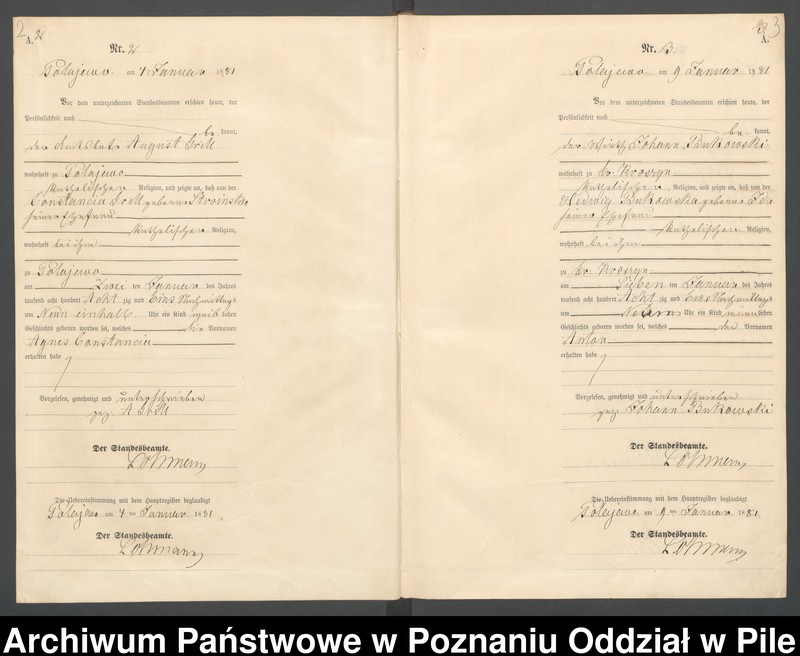 2
A.
Nr. 2
Polajewo am 4 Januar 1881
Vor dem unterzeichneten Standesbeamten erschien heute, der
Persönlichkeit nach
be kannt,
der Amtsbote August
wohnhaft zu Polajewo
katholischen Religion, und zeigte an, daß von der
Constancia geborene
seiner Ehefrau
katholischen Religion,
wohnhaft bei ihm
zu Polajewo
am Zwei ten Januar des Jahres
tausend acht hundert Acht zig und Eins Nachmittags
um Neun einhalb Uhr ein Kind weib lichen
Geschlechts geboren worden sei, welches die Vornamen
Agnes Constancia
erhalten habe
Vorgelesen, genehmigt und unterschrieben
gez. A
Der Standesbeamte.
Lohmann
Die Uebereinstimmung mit dem Hauptregister beglaubigt
Polajewo am 4 ten Januar 1881.
Der Standesbeamte.
Lohmann
3
A.
Nr. 3
Polajewo am 9 Januar 1881
Vor dem unterzeichneten Standesbeamten erschien heute, der
Persönlichkeit nach
be kannt,
der Wirth Johann Bukowski
wohnhaft zu Gr. Kroszyn
katholischen Religion, und zeigte an, daß von der
Hedwig Bukowska geborene
seiner Ehefrau
katholischen Religion,
wohnhaft bei ihm
zu Gr. Kroszyn
am Sieben ten Januar des Jahres
tausend acht hundert Acht zig und Eins Nachmittags
um Uhr ein Kind männ lichen
Geschlechts geboren worden sei, welches den Vornamen
Anton
erhalten habe
Vorgelesen, genehmigt und unterschrieben
gez. Johann Bukowski
Der Standesbeamte.
Lohmann
Die Uebereinstimmung mit dem Hauptregister beglaubigt
Polajewo am 9 ten Januar 1881.
Der Standesbeamte.
Lohmann
Archiwum Państwowe w Poznaniu Oddział w Pile